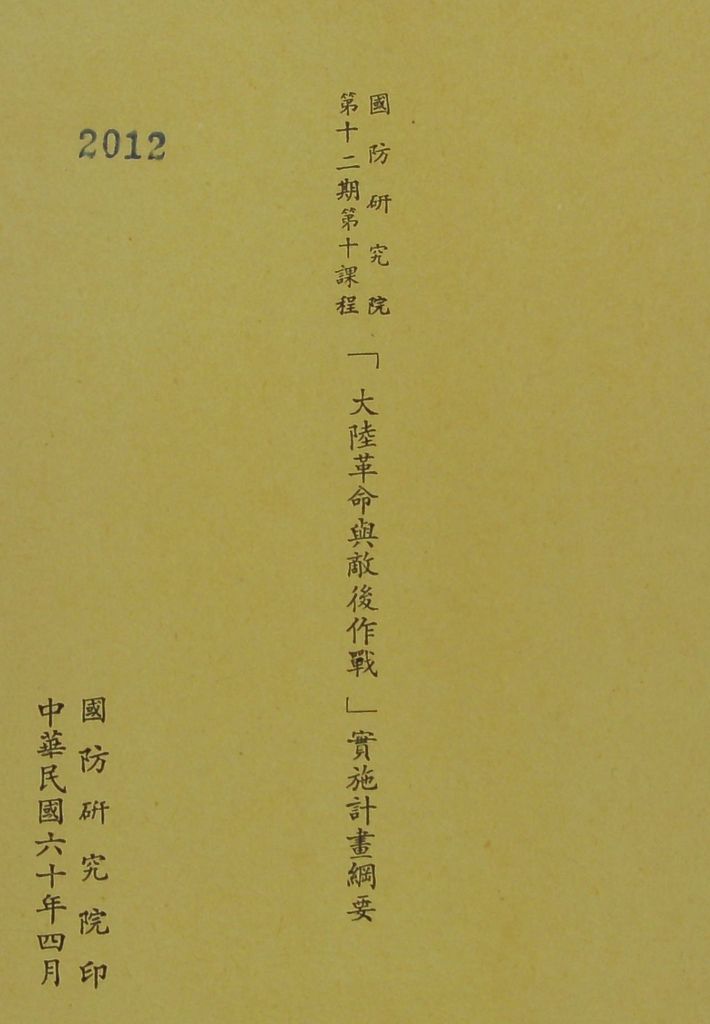 國防研究院
第十二期第十課程
「大陸革命與敵後作戰」實施計畫綱要
2012
國防研究院印
中華民國六十年四月